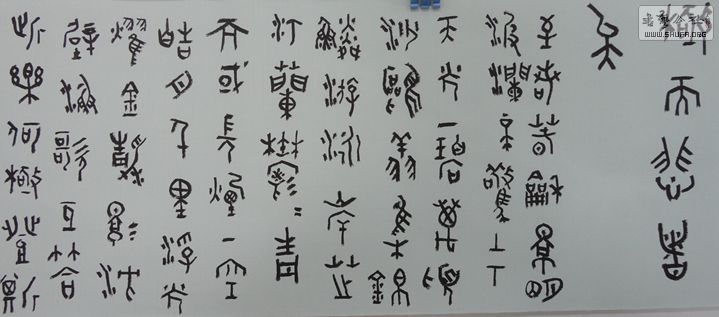 極而悲者
矣
至若春和景明
波瀾不驚上下
天光一碧萬頃
沙鷗翔集錦
鱗游泳岸芷
汀蘭青
而或長煙一空
皓月千里浮光
耀金靜影沈
璧漁歌互答
此樂何極登斯
书艺公社
WWW.SHUFA.ORG